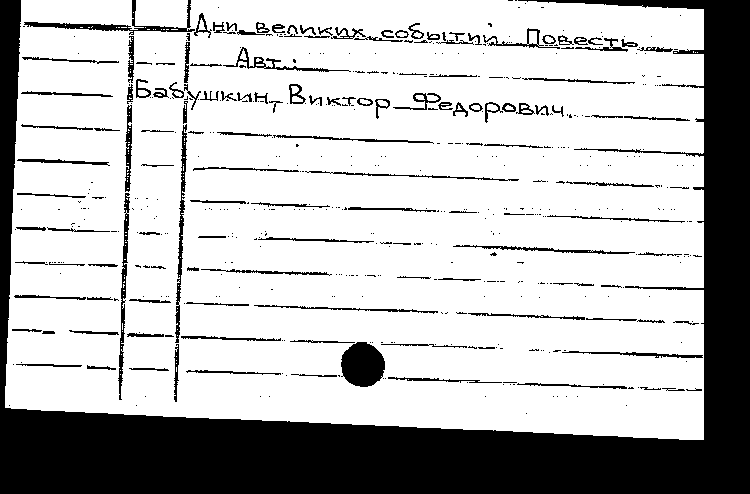 Дни великих событий. Повесть
Авт.:
Бабушкин, Виктор Федорович.